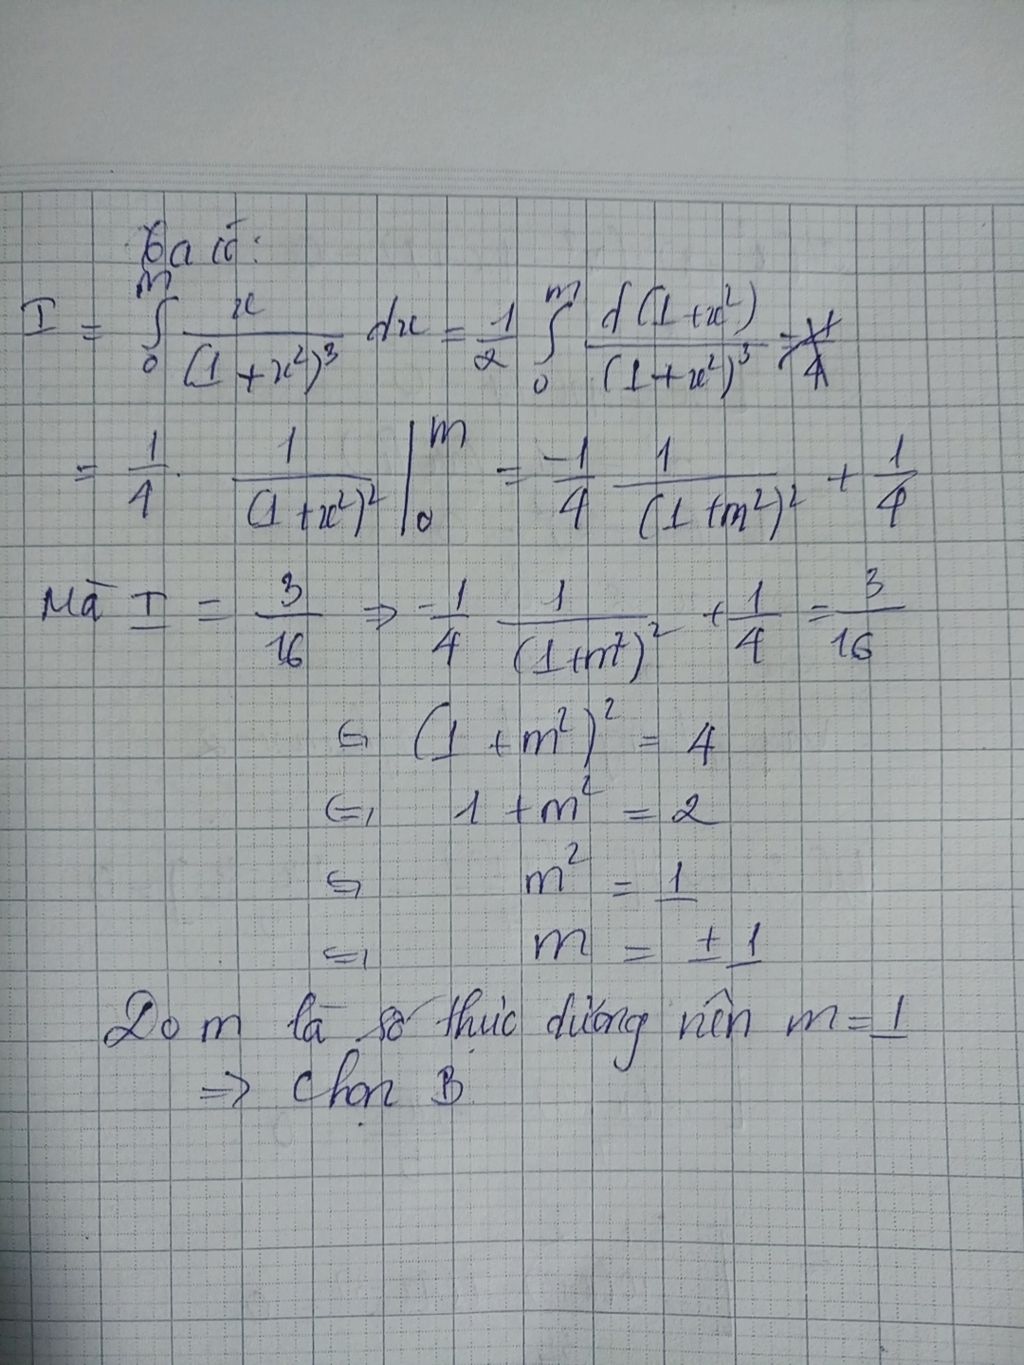 Ta có:
I = ∫₀ᵐ x/(1+x²)³ dx = 1/2 ∫₀ᵐ d(1+x²)/(1+x²)³
= 1/4 · 1/(1+x²)² |₀ᵐ = -1/4 1/(1+m²)² + 1/4
Mà I = 3/16 ⇒ -1/4 1/(1+m²)² + 1/4 = 3/16
⇔ (1+m²)² = 4
⇔ 1+m² = 2
⇔ m² = 1
⇔ m = ±1
Do m là số thực dương nên m = 1
⇒ Chọn B